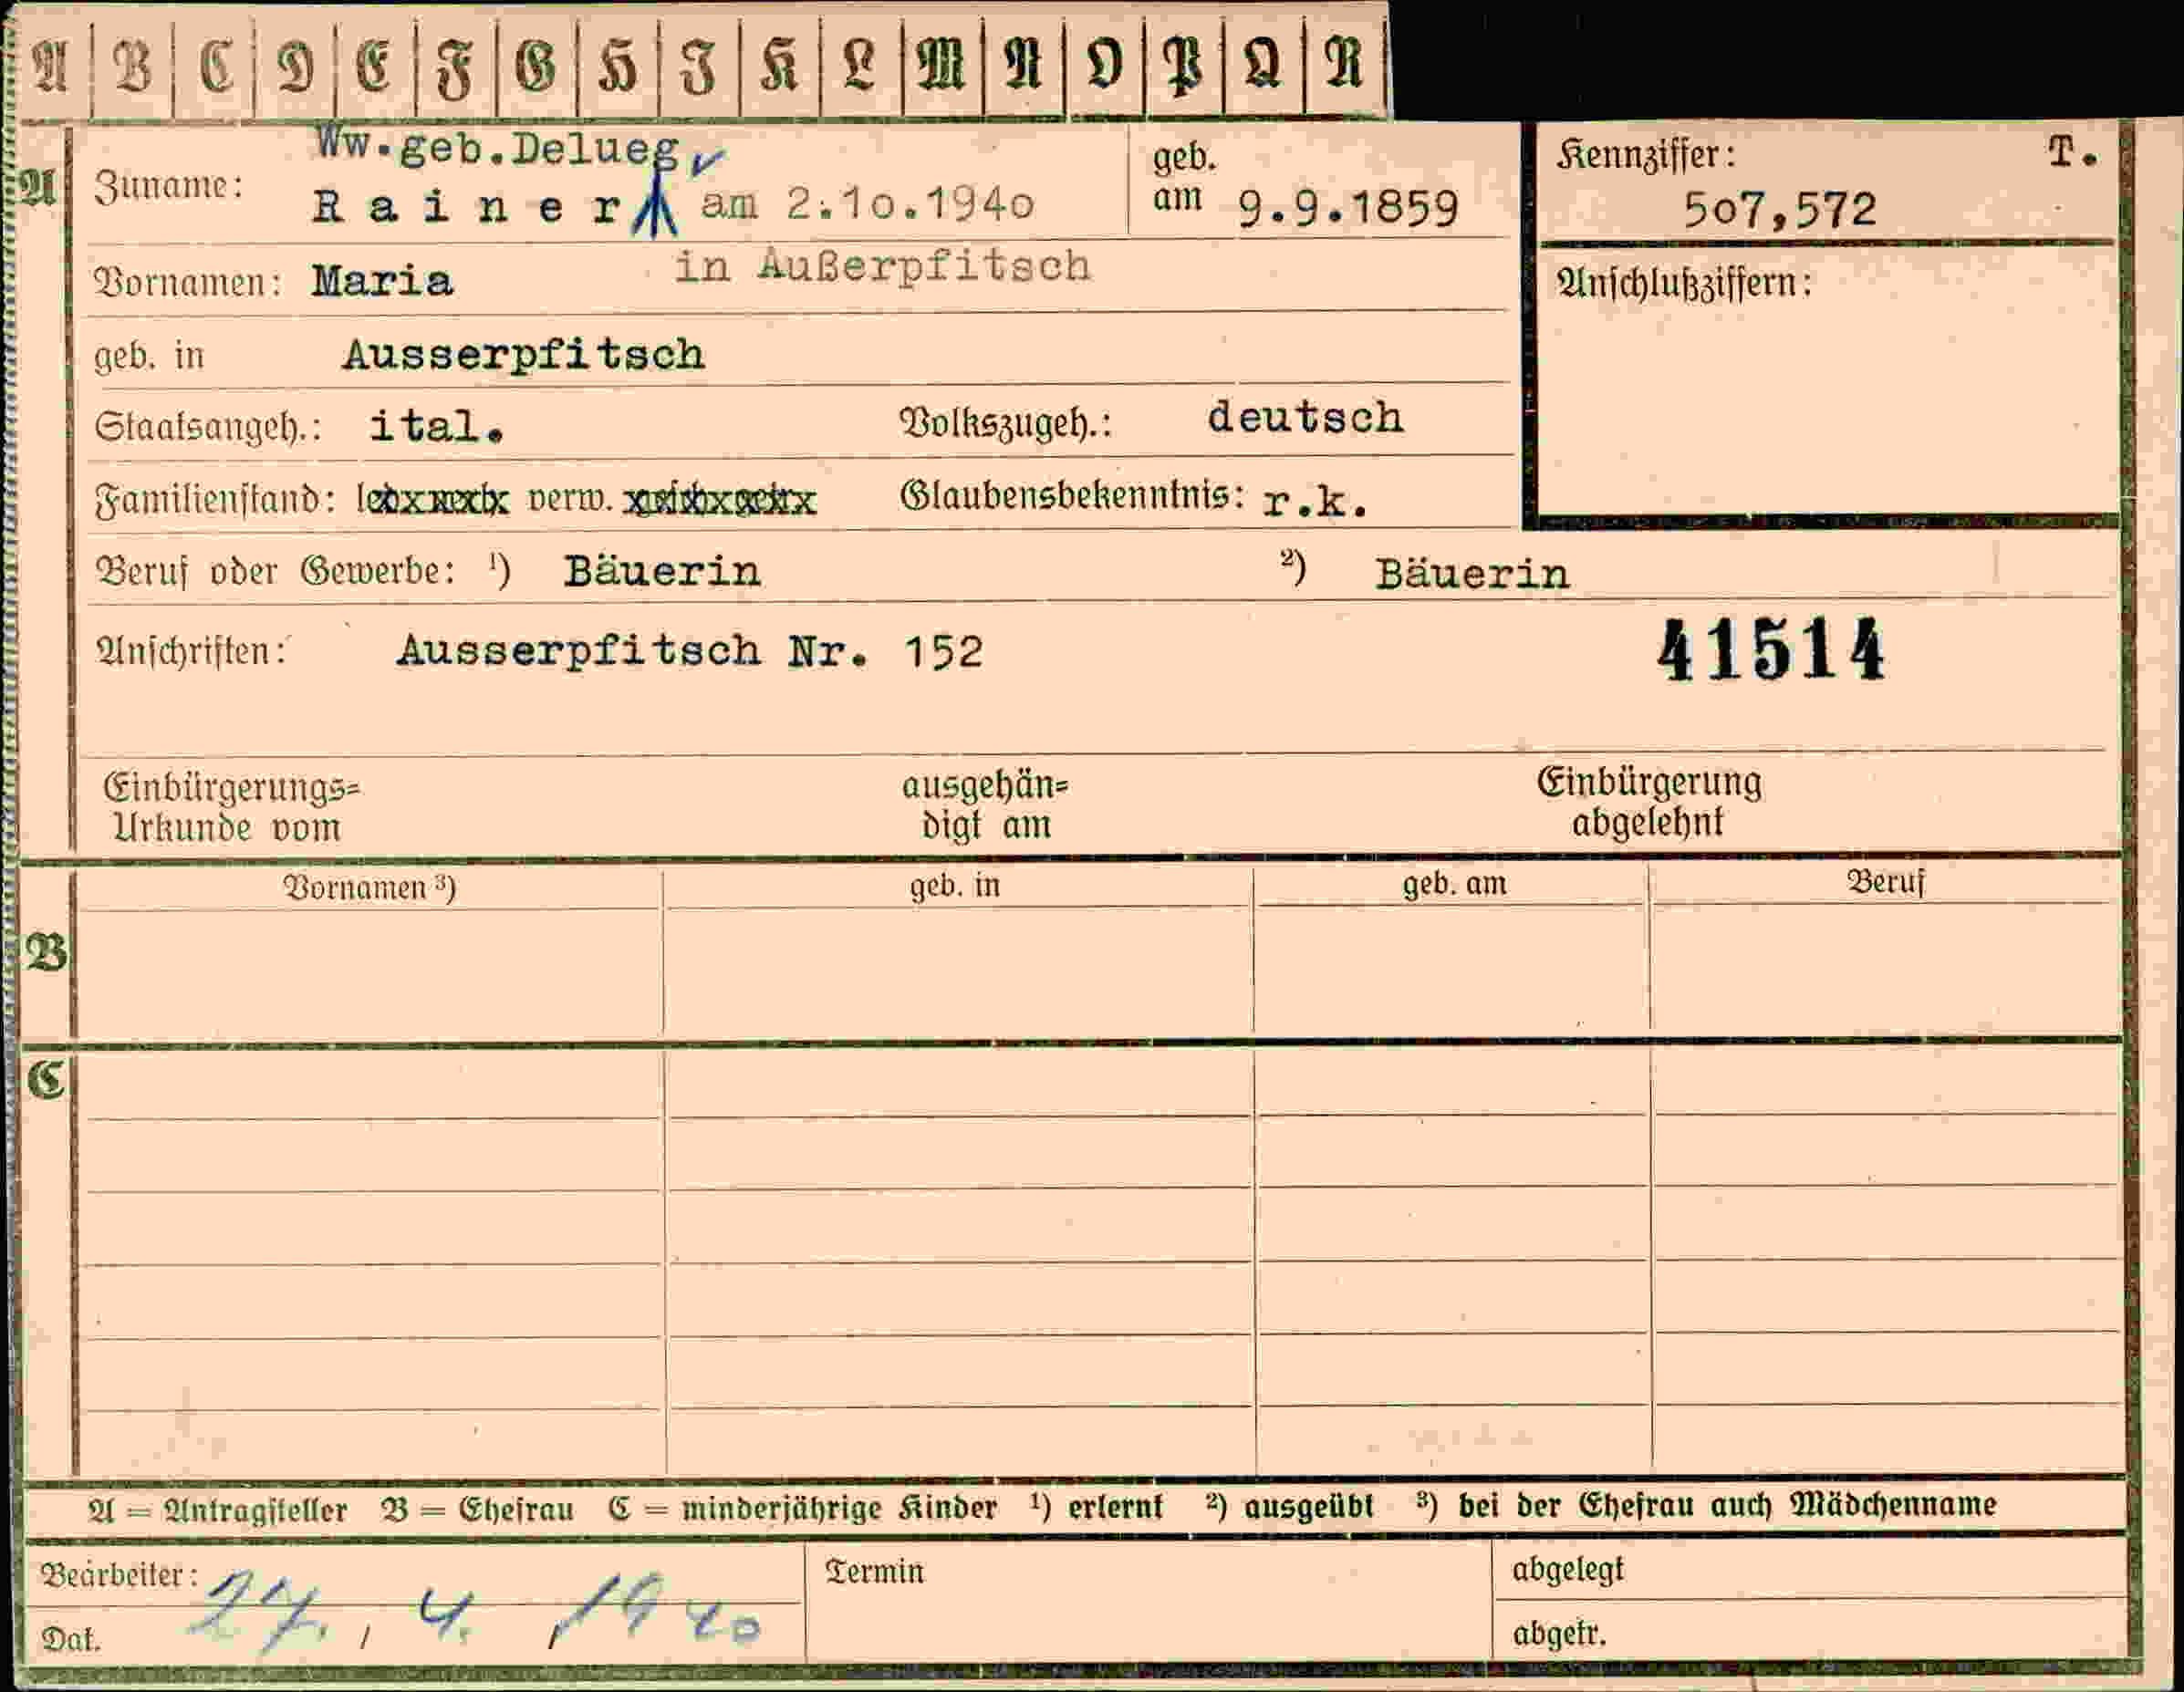 A B C D E F G H I K L M N O P Q R
Ww.geb.Delueg
A Zuname: Rainer am 2.10.1940 geb. am 9.9.1859 Kennziffer: T.
507,572
Vornamen: Maria in Außerpfitsch Anschlußziffern:
geb. in Ausserpfitsch
Staatsangeh.: ital. Volkszugeh.: deutsch
Familienstand: verw. Glaubensbekenntnis: r.k.
Beruf oder Gewerbe: ¹) Bäuerin ²) Bäuerin
Anschriften: Ausserpfitsch Nr. 152 41514
Einbürgerungs= ausgehän= Einbürgerung
Urkunde vom digt am abgelehnt
Vornamen ³) geb. in geb. am Beruf
B
C
A = Antragsteller B = Ehefrau C = minderjährige Kinder ¹) erlernt ²) ausgeübt ³) bei der Ehefrau auch Mädchenname
Bearbeiter: Termin abgelegt
Dat. 27. 4. 1940 abgetr.